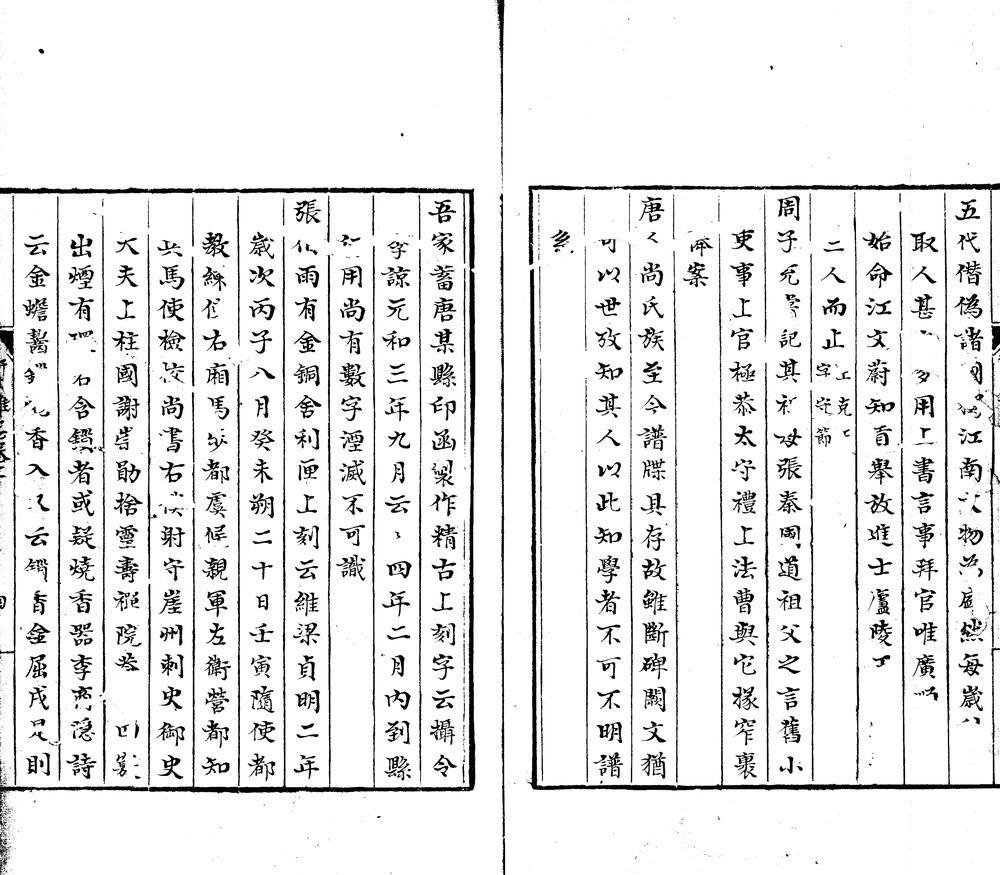 五代僭偽諸國江南文物為盛然每歲
取人甚用上書言事拜官唯廣順
始命江文蔚知貢舉放進士廬陵
二人而止 王克 字守節
周子充記其祖母張秦國道祖父之言舊小
吏事上官極恭太守禮上法曹與它掾窄裹
案
唐人尚氏族至今譜牒具存故雖斷碑闕文猶
可以世攷知其人以此知學者不可不明譜
系
吾家蓄唐某縣印函製作精古上刻字云攝令
李諒元和三年九月云云四年二月內到縣
用尚有數字湮滅不可識
張似雨有金銅舍利匣上刻云維梁貞明二年
歲次丙子八月癸未朔二十日壬寅隨使都
教練使右廂馬步都虞候親軍左衛營都知
兵馬使檢校尚書右僕射守崖州刺史御史
大夫上柱國謝崇勛捨靈壽禪院
出煙有含鐶者或疑燒香器李商隱詩
云金蟾齧香入又云鏁香金屈戌是則